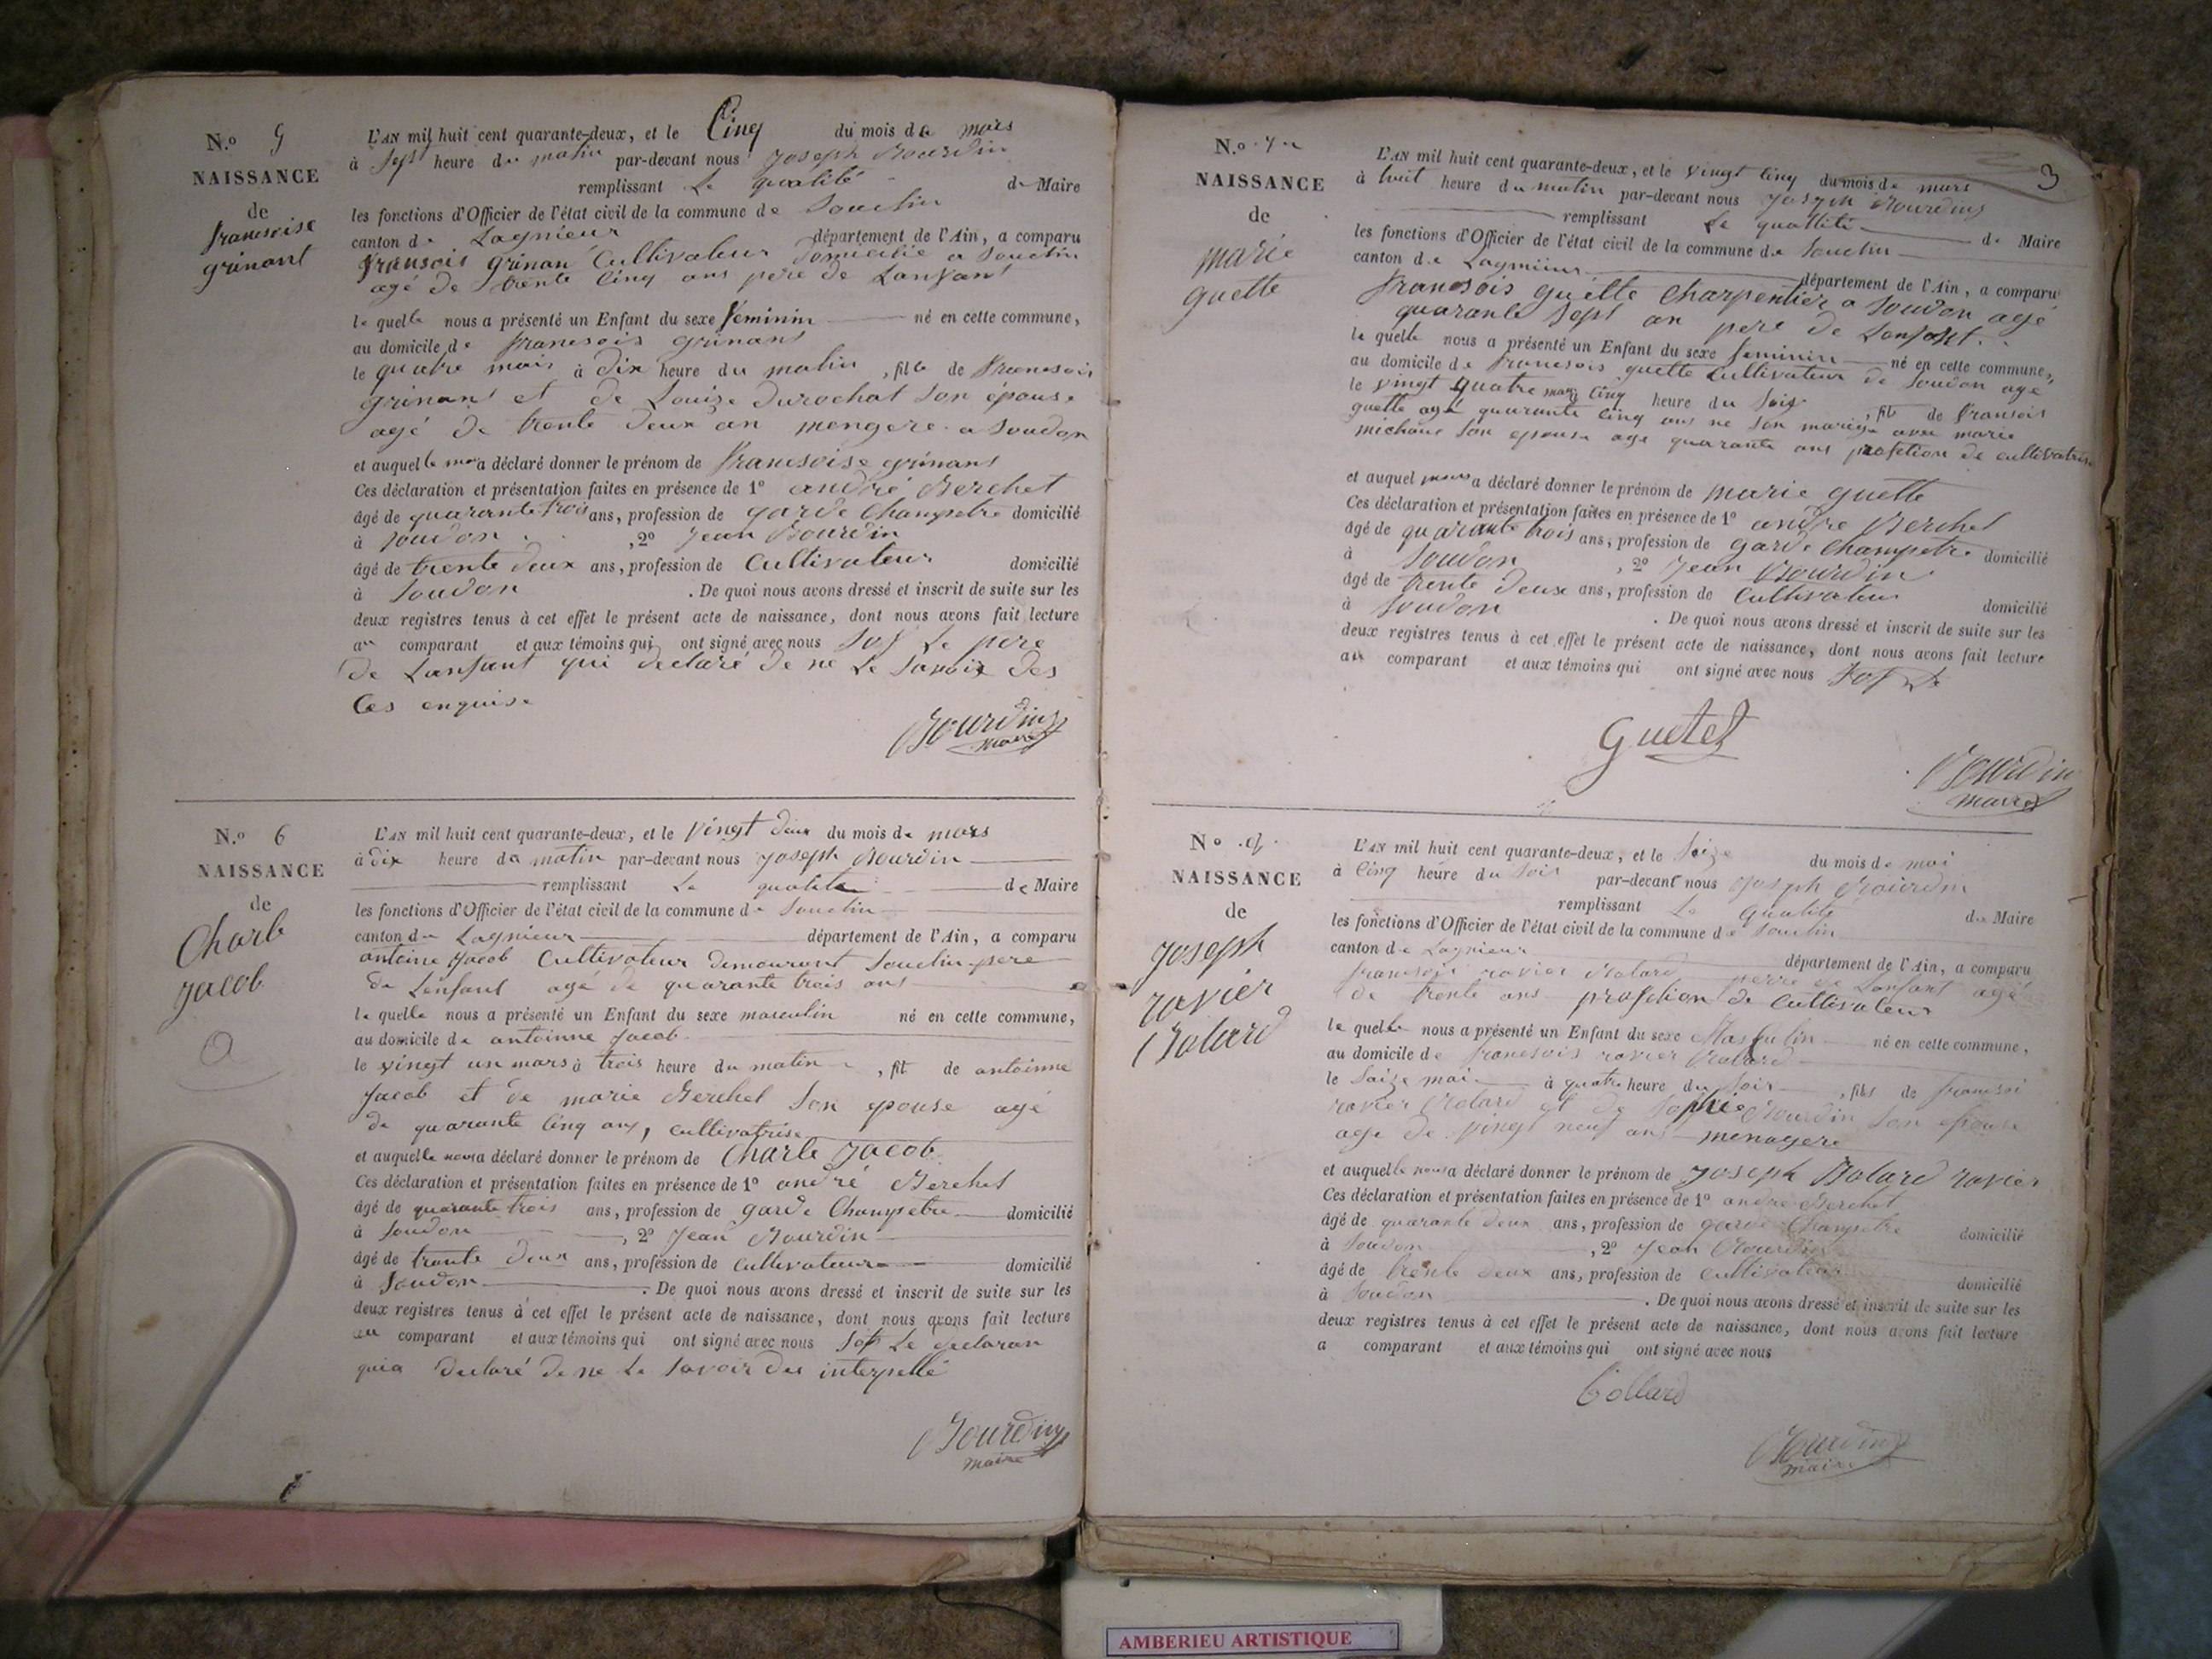 N.o 5
NAISSANCE
de
francoise
grinant
L'AN mil huit cent quarante-deux, et le Cinq du mois de mars
à Sept heure du matin par-devant nous Joseph Bourdin
remplissant Le qualité de Maire
les fonctions d'Officier de l'état civil de la commune de Souclin
canton de Lagnieur département de l'Ain, a comparu
fransois grinan Cultivateur domicilié a Souclin
agé de trente Cinq ans pere de Lanfant
le quelle nous a présenté un Enfant du sexe feminin né en cette commune,
au domicile de francsois grinant
le quatre mars à dix heure du matin , fille de francsois
grinant et de Louise Durochat Son épouse
agé de trente deux an mengere a Soudon
et auquelle nous a déclaré donner le prénom de francsoise grinant
Ces déclaration et présentation faites en présence de 1º andré Berchet
âgé de quarante trois ans, profession de garde Champetre domicilié
à Soudon , 2º Jean Bourdin
âgé de trente deux ans, profession de Cultivateur domicilié
à Soudon . De quoi nous avons dressé et inscrit de suite sur les
deux registres tenus à cet effet le présent acte de naissance, dont nous avons fait lecture
au comparant et aux témoins qui ont signé avec nous Sof Le pere
de Lanfant qui declaré de ne Le Savoir des
Ces enquise
Bourdin
maire
N.o 6
NAISSANCE
de
Charle
Jacob
L'AN mil huit cent quarante-deux, et le vingt deux du mois de mars
à dix heure du matin par-devant nous Joseph Bourdin
remplissant Le qualité de Maire
les fonctions d'Officier de l'état civil de la commune de Souclin
canton de Lagnieur département de l'Ain, a comparu
antoine Jacob Cultivateur demourant Souclin pere
de Lenfant agé de quarante trois ans
le quelle nous a présenté un Enfant du sexe masculin né en cette commune,
au domicile de antoinne Jacob
le vingt un mars à trois heure du matin , fil de antoinne
Jacob et de marie Berchet Son epouse agé
de quarante Cinq ans, Cultivatrise
et auquelle nous a déclaré donner le prénom de Charle Jacob
Ces déclaration et présentation faites en présence de 1º andré Berchet
âgé de quarante trois ans, profession de garde Champetre domicilié
à Soudon , 2º Jean Bourdin
âgé de trante deux ans, profession de Cultivateur domicilié
à Soudon . De quoi nous avons dressé et inscrit de suite sur les
deux registres tenus à cet effet le présent acte de naissance, dont nous avons fait lecture
au comparant et aux témoins qui ont signé avec nous Sof Le declaran
qui a declaré de ne Le Savoir des interpellé
Bourdin
maire
3
N.o 7
NAISSANCE
de
marie
guette
L'AN mil huit cent quarante-deux, et le vingt Cinq du mois de mars
à huit heure du matin par-devant nous Joseph Bourdin
remplissant Le quallité de Maire
les fonctions d'Officier de l'état civil de la commune de Souclin
canton de Lagnieur département de l'Ain, a comparu
francsois guette Charpentier a Soudon agé
quarante Sept an pere de Lanfant
le quelle nous a présenté un Enfant du sexe feminin né en cette commune,
au domicile de francsois guette Cultivateur de Soudon agé
le vingt quatre mars Cinq heure du Soir , file de fransois
guette agé quarante Cinq ans ne Son mariage avec marie
michaux Son epouse age quarante ans profetion de cultivatrise
et auquel nous a déclaré donner le prénom de marie guette
Ces déclaration et présentation faites en présence de 1º andre Berchet
âgé de quarante trois ans, profession de garde Champetre domicilié
à Soudon , 2º Jean Bourdin
âgé de trente deux ans, profession de Cultivateur domicilié
à Soudon . De quoi nous avons dressé et inscrit de suite sur les
deux registres tenus à cet effet le présent acte de naissance, dont nous avons fait lecture
au comparant et aux témoins qui ont signé avec nous Sof
Guetet
Bourdin
maire
No 8
NAISSANCE
de
Joseph
ravier
Bolard
L'AN mil huit cent quarante-deux, et le Seize du mois de mai
à Cinq heure du Soir par-devant nous Joseph Bourdin
remplissant Le Qualité de Maire
les fonctions d'Officier de l'état civil de la commune de Souclin
canton de Lagnieur département de l'Ain, a comparu
francsois ravier Bolard perre de Lanfant agé
de trente ans profetion de Cultivateur
le quelle nous a présenté un Enfant du sexe Masculin né en cette commune,
au domicile de francsois ravier Bolard
le Saize mai à quatre heure du Soir , fils de francsoi
ravier Bolard et de Sophie Bourdin Son epouse
age de vingt neuf ans menagere
et auquelle nous a déclaré donner le prénom de Joseph Bolard ravier
Ces déclaration et présentation faites en présence de 1º andré Berchet
âgé de quarante deux ans, profession de garde Champetre domicilié
à Soudon , 2º Jean Bourdin
âgé de trente deux ans, profession de Cultivateur domicilié
à Soudon . De quoi nous avons dressé et inscrit de suite sur les
deux registres tenus à cet effet le présent acte de naissance, dont nous avons fait lecture
a comparant et aux témoins qui ont signé avec nous
Collard
Bourdin
maire
AMBERIEU ARTISTIQUE